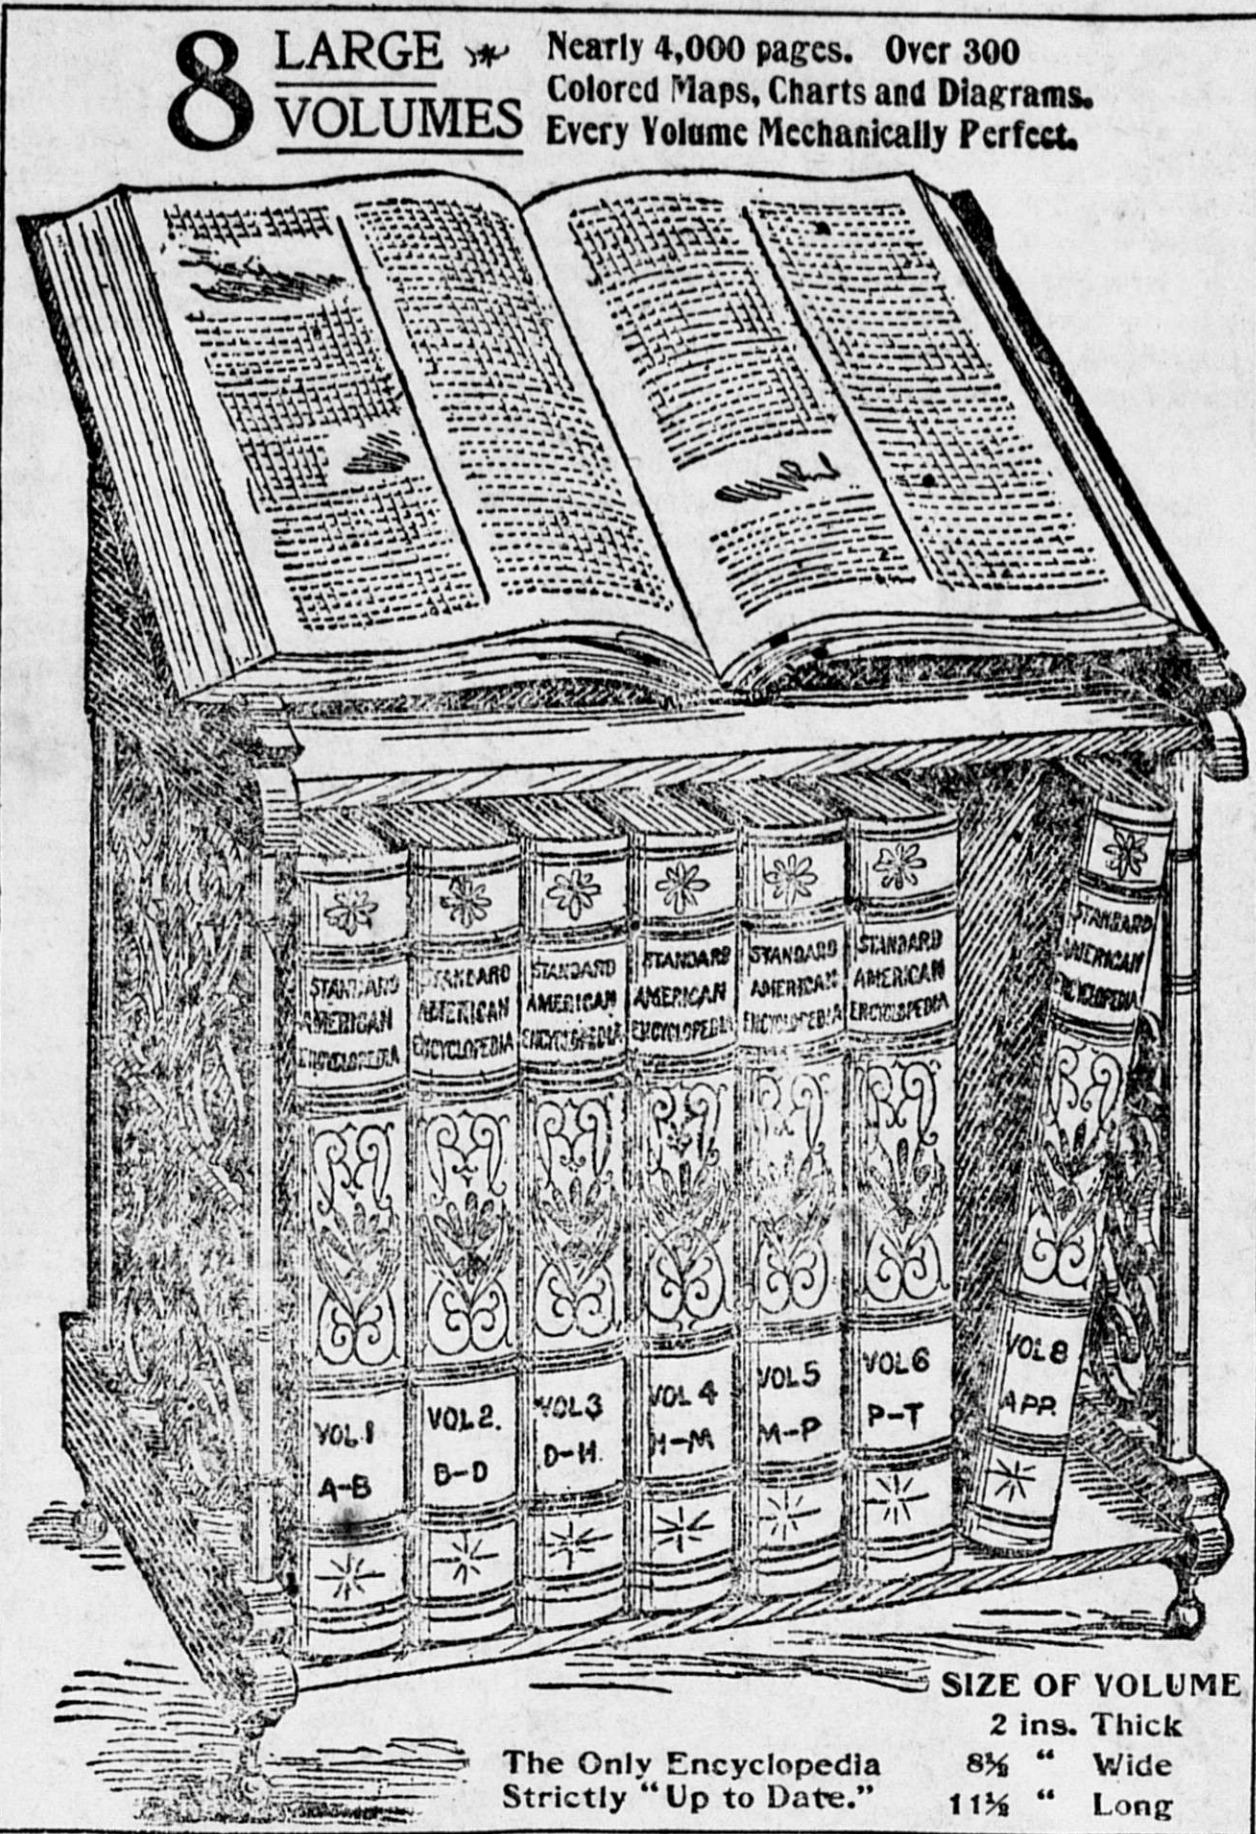 8 LARGE
VOLUMES
Nearly 4,000 pages. Over 300
Colored Maps, Charts and Diagrams.
Every Volume Mechanically Perfect.
STANDARD
AMERICAN
ENCYCLOPEDIA
VOL.1
A-B
STANDARD
AMERICAN
ENCYCLOPEDIA
VOL2.
B-D
STANDARD
AMERICAN
ENCYCLOPEDIA
VOL3
D-H.
STANDARD
AMERICAN
ENCYCLOPEDIA
VOL 4
H-M
STANDARD
AMERICAN
ENCYCLOPEDIA
VOL5
M-P
STANDARD
AMERICAN
ENCYCLOPEDIA
VOL6
P-T
STANDARD
AMERICAN
ENCYCLOPEDIA
VOL8
APP.
The Only Encyclopedia
Strictly "Up to Date."
SIZE OF VOLUME
2 ins. Thick
8½ " Wide
11½ " Long